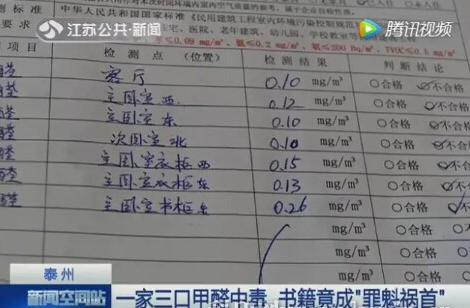 江苏公共·新闻
腾讯视频
测标准 中华人民共和国国家标准《民用建筑工程室内环境污染控制规范
甲醛≤0.08 mg/m³
项目 检测点（位置） 检测结果 判断结论
醛 客厅 0.10 mg/m³ ○合格 不合格
醛 主卧室西 0.12 mg/m³ ○合格 不合格
醛 主卧室东 0.10 mg/m³ ○合格 不合格
醛 次卧室北 0.10 mg/m³ ○合格 不合格
醛 主卧室衣柜西 0.15 mg/m³ ○合格 不合格
醛 主卧室衣柜东 0.13 mg/m³ ○合格 不合格
醛 主卧室书柜东 0.26 mg/m³ ○合格
mg/m³ ○合格 ○不
mg/m³ ○合格
泰州
新闻空间站
一家三口甲醛中毒 书籍竟成"罪魁祸首"